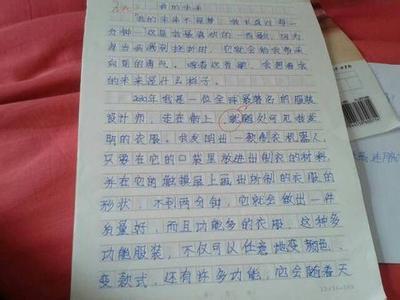 我的未来
"我的未来不是梦,我认真过每一
分钟"这是我最喜欢的一首歌,因为
每当病魔到挫折时,它就会给我带来
向前的勇气。随着这首歌,会想着我
的未来是什么样子。
2030年我是一位全球最著名的服装
设计师,走在街上,就随处可见我发
明的衣服。我发明出一款制衣机器人,
只要在它的口袋里放进出制衣的材料,
并在它的触摸屏上画出所制的衣服的
形状,不到两分钟,它就会做出一件
质量好,而且功能多的衣服。这种多
功能服装,不仅可以任意地变颜色、
变款式,还有许多功能,它会随着天